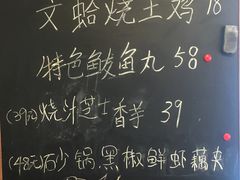 文蛤烧土鸡 18
特色鲅鱼丸 58
(39元)烧汁芝士香芋 39
(48元)石少锅黑椒鲜虾藕夹